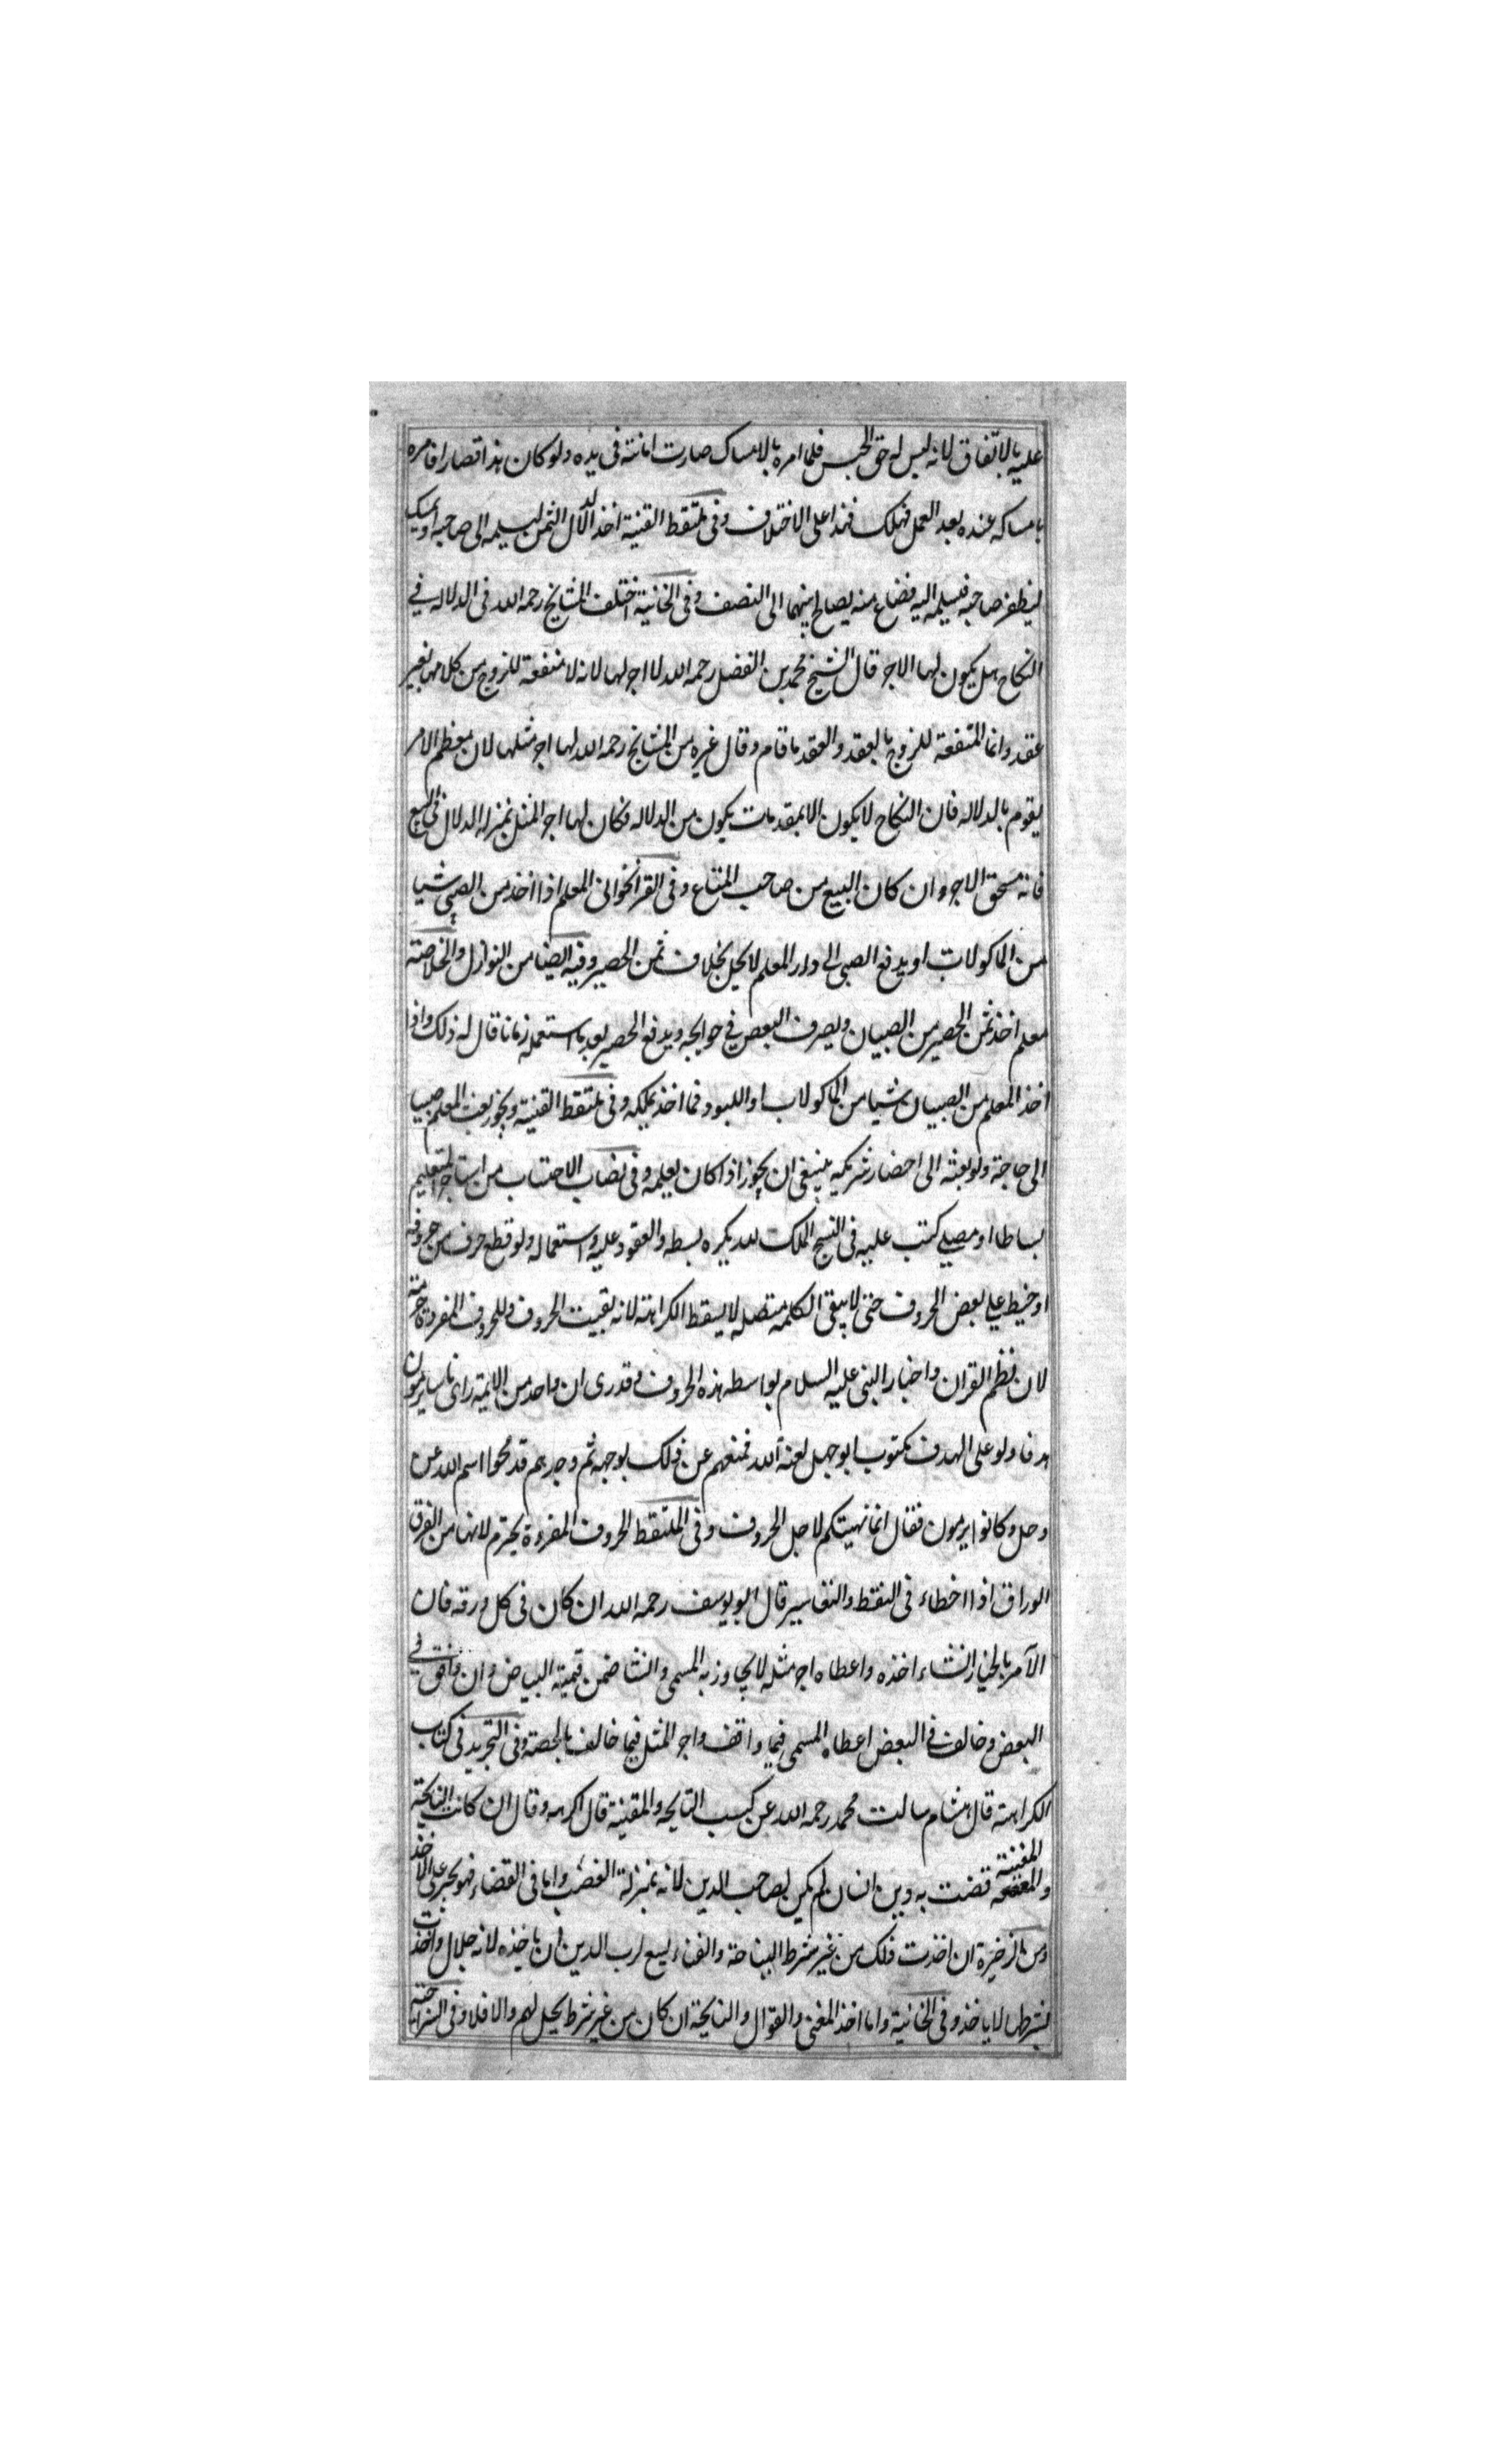 عليه بالاتفاق لانه ليس له حق الحبس فلما امره بالامساك صارت امانته فى يده ولو كان هذا قصارا فامره
بامساكه عنده بعد العمل فهلك فهذا على الاختلاف وفى ملتقط القنية اخذ الدلال الثمن ليسلمه الى صاحبه او يمسك
ليظفر صاحبه فيسلمه اليه فضاع منه يصالح بينهما الى النصف وفى الخانية اختلف المشايخ رحمه الله فى الدلاله في
النكاح هل يكون لها الاجر قال الشيخ محمد بن الفضل رحمه الله لا اجر لها لانه لا منفعة للزوج من كلامها بغير
عقد وانما المنفعة للزوج بالعقد والعقد ما قام وقال غيره من المشايخ رحمه الله لها اجر مثلها لان معظم الامر
يقوم بالدلاله فان النكاح لا يكون الا بمقدمات يكون من الدلاله فكان لها اجر المثل بمنزله الدلال في البيع
فانه يستحق الاجر وان كان البيع من صاحب المتاع وفى القراخوانى المعلم اذا اخذ من الصبي شيا
من الماكولات او يدفع الصبى الى دار المعلم لا يحل بخلاف ثمن الحصير وفيه ايضا من النوازل والخلاصة
معلم اخذ ثمن الحصير من الصبيان ويصرف البعض في حوايجه ويدفع الحصير بعد ما استعمله زمانا قال له ذلك واذا
اخذ المعلم من الصبيان شيا من الماكولات او اللبود فما اخذ يملكه وفى ملتقط القنية ويجوز بعث المعلم صبيا
الى حاجة ولو بعثه الى احضار شريكه ينبغى ان يجوز اذا كان يعلمه وفى نصاب الاحتساب من استاجر لتعليم
بساطا او مصلے كتب عليه فى النسج الملك لله يكره بسطه والقعود عليه واستعماله ولو قطع حرف من حروفه
او خيط علے بعض الحروف حتى لا يبقى الكلمه متصله لا يسقط الكراهته لانه بقيت الحروف وللحروف المفردة حرمته
لان نظم القران واخبار النبى عليه السلام بواسطه هذه الحروف وقد روى ان واحد من الايمة راى ناسا يرمون
هدفا ولو على الهدف مكتوب ابو جهل لعنة الله فمنعهم عن ذلك لوجهه ثم وجدهم قد محوا اسم الله عن
وجل وكانوا يرمون فقال انما نهيتكم لاجل الحروف وفى الملتقط الحروف المفردة يحترم لانها من القران
الوراق اذا اخطاء فى النقط والتفاسير قال ابو يوسف رحمه الله ان كان فى كل ورقه فان
الآمر بالخيار ان شاء اخذه واعطاه اجر مثله لا يجاوز به المسمى وان شا ضمن قيمة البياض وان وافق في
البعض وخالف في البعض اعطاه المسمى فيما وافق واجر المثل فيما خالف بالحصة وفى التجريد فى كتاب
الكراهته قال هشام سالت محمد رحمه الله عن كسب النايحه والمغنية قال اكرهه وقال ان كانت النايحة
والمغنية قضت به دين انسان لم يكن لصاحب الدين لانه بمنزلة الغصب واما فى القضاء فهو يجبر على الاخذ
ومن الذخيرة ان اخذت ذلك من غير شرط النياحة والغناء يسع لرب الدين ان ياخذه لانه حلال وان اخذت
بشرط لا ياخذ وفى الخانية واما اخذ المغنى والقوال والنايحة ان كان من غير شرط يحل لهم والا فلا وفى السراجيه